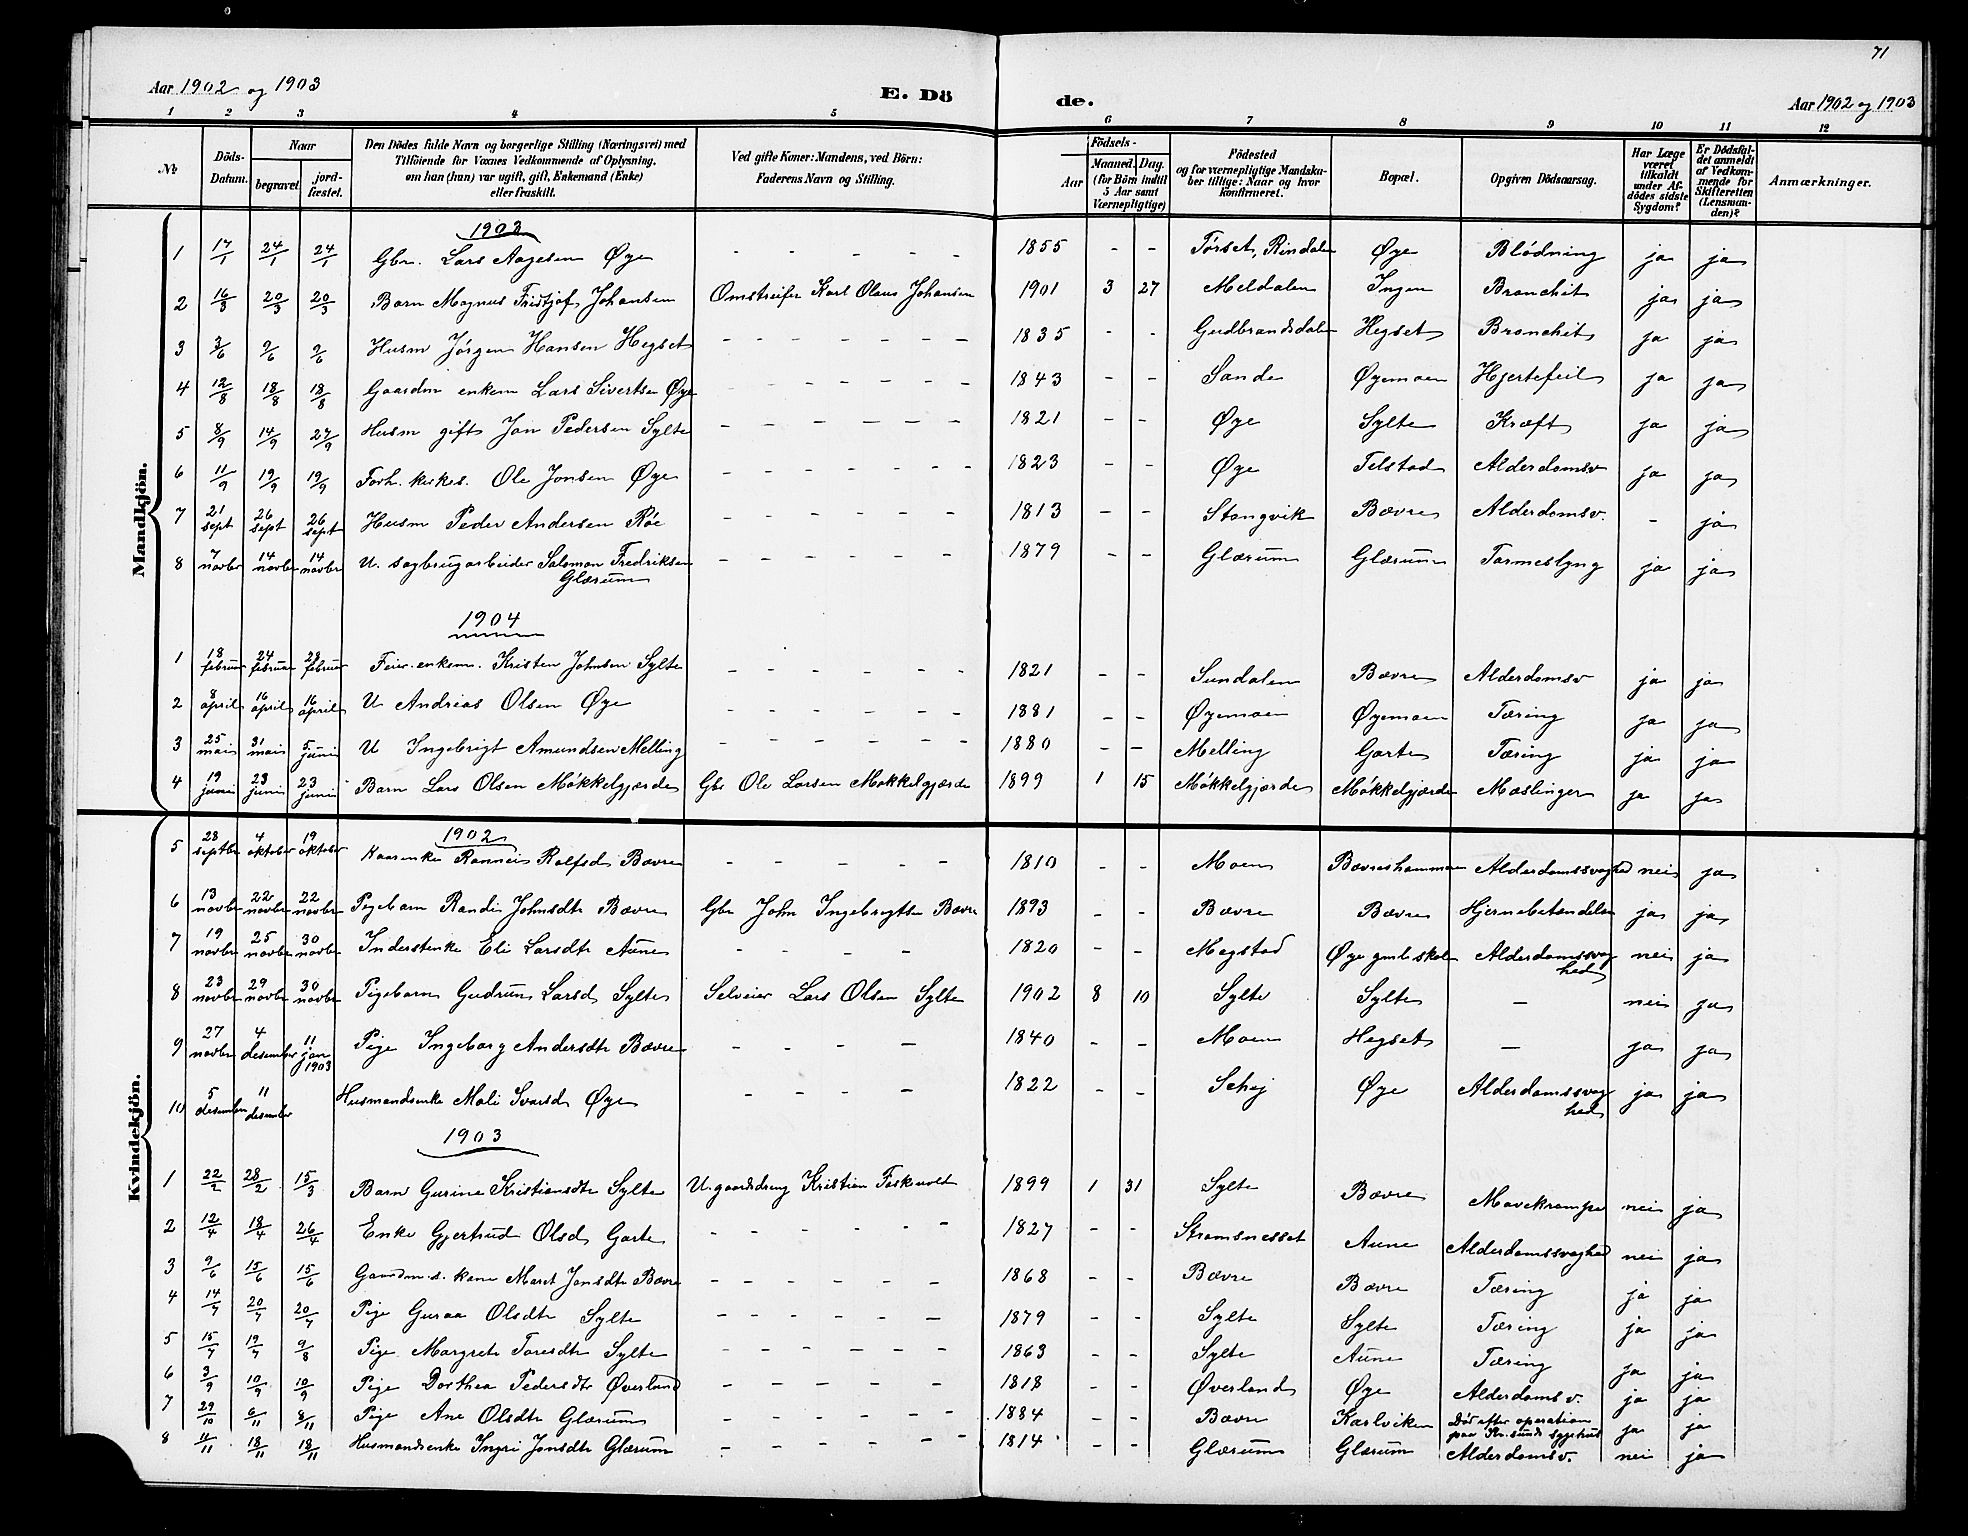 71
Aar 1902 og 1903 E. Dö de. Aar 1902 og 1903
1 2 3 4 5 6 7 8 9 10 11 12
No Döds-Datum. Naar begravet. jordfæstet. Den Dödes fulde Navn og borgerlige Stilling (Næringsvei) med Tilföiende for Voxnes Vedkommende af Oplysning, om han (hun) var ugift, gift, Enkemand (Enke) eller fraskilt. Ved gifte Koner: Mandens, ved Börn: Faderens Navn og Stilling. Födsels- Aar Maaned. Dag. (for Börn indtil 5 Aar samt Værnepligtige) Födested og for værnepligtige Mandskaber tillige: Naar og hvor konfirmeret. Bopæl. Opgiven Dödsaarsag. Har Læge været tilkaldt under Afdödes sidste Sygdom? Er Dödsfaldet anmeldt af Vedkommende for Skifteretten (Lensmanden)? Anmærkninger.
Mandkjön.
1903
1 17/1 24/1 24/1 Gbr. Lars Aagesen Øye - - - - - 1855 - - Tørset, Rindalen Øye Blødning ja ja
2 16/3 20/3 20/3 Barn Magnus Fristjof Johansen Omstreifer Karl Olaus Johansen 1901 3 27 Meldalen Ingen Bronchit ja ja
3 3/6 9/6 9/6 Husm Jørgen Hansen Hegset - - - - - - - 1835 - - Gudbrandsdalen Hegset Bronchit ja ja
4 12/8 18/8 18/8 Gaardm enkem Lars Sivertsen Øye - - - - - - - 1843 - - Sande Øyemoen Hjertefeil ja ja
5 8/9 14/9 27/9 Husm gift Jon Pedersen Sylte - - - - - - - 1821 - - Øye Sylte Kræft ja ja
6 11/9 19/9 19/9 Forh. kirkes. Ole Jonsen Øye - - - - - - - 1823 - - Øye Telstad Alderdomsv ja ja
7 21 sept 26 sept 26 sept Husm Peder Andersen Röe - - - - - - 1813 - - Stangvik Bævre Alderdomsv. - ja
8 7 novbr 14 novbr 14 novbr U. sagbrugarbeider Salomon Fredriksen - - - - - - 1879 - - Glærum Glærum Tarmeslyng ja ja
Glærum
1904
1 18 februar 24 februar 28 februar Feier. enkem. Kristen Johnsen Sylte - - - - - 1821 - - Sundalen Bævre Alderdomsv ja ja
2 8 april 16 april 16 april U Andreas Olsen Øye - - - - - - 1881 - - Øyemoen Øyemoen Tæring ja ja
3 25 mais 31 mais 5 juni U Ingebrigt Amundsen Melling - - - - - - 1880 - - Melling Garte Tæring ja ja
4 19 juni 23 juni 23 juni Barn Lars Olsen Møkkelgjerde Gbr Ole Larsen Møkkelgjerde 1899 1 15 Møkkelgjerde Møkkelgjerde Mæslinger ja ja
Kvindekjön.
1902
5 28 septbr 4 oktober 19 oktober Kaarenke Rannei Rolfsd Bævre - - - - 1810 - - Moen Bævreshammeren Alderdomssvaghed nei ja
6 13 novbr 22 novbr 22 novbr Pigebarn Randi Johnsdtr Bævre Gbr John Ingebrigtsen Bævre 1893 - - Bævre Bævre Hjernebetændelse ja ja
7 19 novbr 25 novbr 30 novbr Inderstenke Eli Larsdtr Aune - - - - 1820 - - Megstad Øye gmle skole Alderdomssvag nei ja
hed
8 23 novbr 29 novbr 30 novbr Pigebarn Gudrun Larsd Sylte Selveier Lars Olsen Sylte 1902 8 10 Sylte Sylte - nei ja
9 27 novbr 4 desember 11 jan 1903 Pige Ingeborg Andersdtr Bævre - - - - 1840 - - Moen Hegset - ja ja
10 5 desember 11 desember Husmandsenke Mali Ivarsd Øye - - - - 1822 - - Schej Øye Alderdomssvag ja ja
hed
1903
1 22/2 28/2 15/3 Barn Gurine Kristiansdtr Sylte U. gaardsdreng Kristian Fiskvolt 1899 1 31 Sylte Bævre Mavekrampe nei ja
2 12/4 18/4 26/4 Enke Gjertrud Olsd Garte - - - - - 1827 - - Strømsnesset Aune Alderdomssvaghed nei ja
3 9/6 15/6 15/6 Gaardm. s. kone Maret Jonsdtr Bævre - - - - - 1868 - - Bævre Bævre Tæring ja ja
4 14/7 20/7 20/7 Pige Guraa Olsdtr Sylte - - - - - - 1879 - - Sylte Sylte Tæring ja ja
5 15/7 19/7 9/8 Pige Margrete Toresdtr Sylte - - - - - - 1863 - - Sylte Aune Tæring ja ja
6 3/9 10/9 10/9 Pige Dorthea Pedersdtr Øverland - - - - - 1818 - - Øverland Øye Alderdoms v. ja ja
7 29/10 6/11 8/11 Pige Ane Olsdtr Glærum - - - - - - 1884 - - Bævre Kærlviken Död efter operation ja ja
paa Kr. sunds sygehus
8 11/11 18/11 18/11 Husmandsenke Ingri Jonsdtr Glærum - - - - - - 1814 - - Glærum Glærum Alderdomsv. nei ja